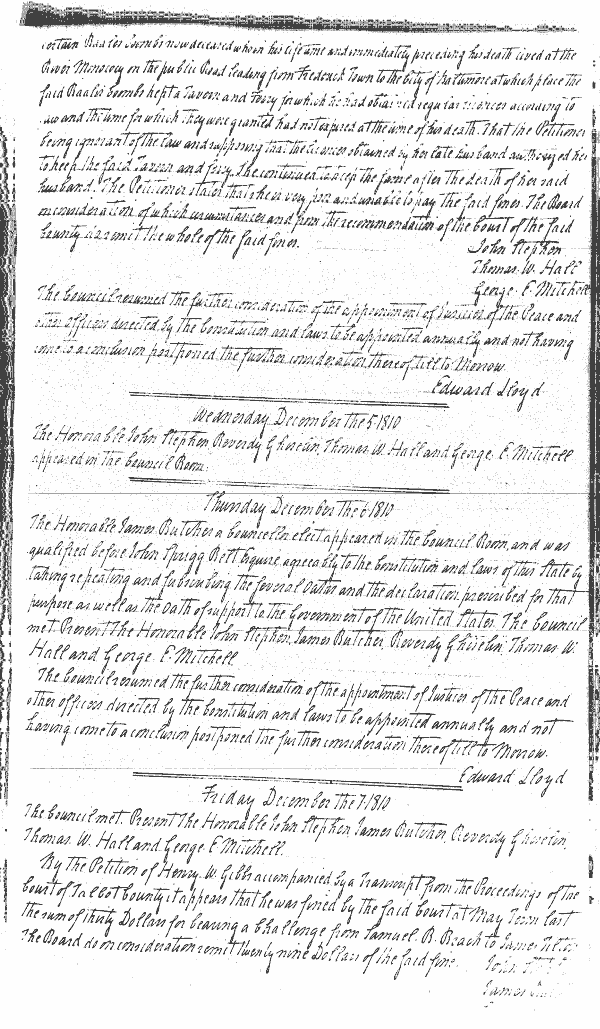 certain Baaler Coombs now deceased who in his life time and immediately preceding his death lived at the
River Monococy on the public Road leading from Frederick Town to the City of Baltimore at which place the
said Baaler Coombs kept a Tavern and Ferry for which he had obtained regular licences according to
Law and the time for which they were granted had not expired at the time of his death. That the Petitioner
being ignorant of the law and supposing that the licences obtained by her late husband authorized her
to keep the said Tavern and ferry. She continued to keep the same after the death of her said
husband. The Petitioner states that she is very poor and unable to pay the said fines. The Board
on consideration of which circumstances and from the recommendation of the Court of the said
County do remit the whole of the said fines.
John Stephen
Thomas. W. Hall
George. E. Mitchell
The Council resumed the further consideration of the appointment of Justices of the Peace and
other officers directed by the Constitution and laws to be appointed annually and not having
come to a conclusion postponed the further consideration thereof till to Morrow.
Edward Lloyd
Wednesday December the 5 1810
The Honorable John Stephen, Reverdy Ghiselin, Thomas. W. Hall and George. E. Mitchell
appeared in the Council Room.
Thursday December the 6 1810
The Honorable James Butcher a councellor elect appeared in the Council Room, and was
qualified before John Sprigg Belt Esquire, agreeably to the Constitution and laws of this State by
taking repeating and subscribing the several Oaths and the declaration prescribed for that
purpose as well as the Oath of support to the Government of the United States. The Council
met. Present The Honorable John Stephen, James Butcher, Reverdy Ghiselin, Thomas W.
Hall and George. E. Mitchell
The Council resumed the further consideration of the appointment of Justices of the Peace and
other officers directed by the Constitution and laws to be appointed annually and not
having come to a conclusion postponed the further consideration thereof till to Morrow.
Edward Lloyd
Friday December the 7 1810
The Council met. Present The Honorable John Stephen James Butcher, Reverdy Ghiselin,
Thomas. W. Hall and George E Mitchell.
By the Petition of Henry. W. Gibbs accompanied by a Transcript from the Proceedings of the
Court of Talbot County it appears that he was fined by the said Court at May Term last
the sum of thirty Dollars for bearing a challenge from Samuel. B. Beach to James Tilton
The Board do on consideration remit twenty nine Dollars of the said fine.
John
James